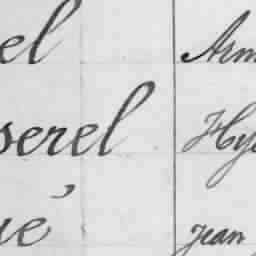 el Arm
serel Hy
ué Jean